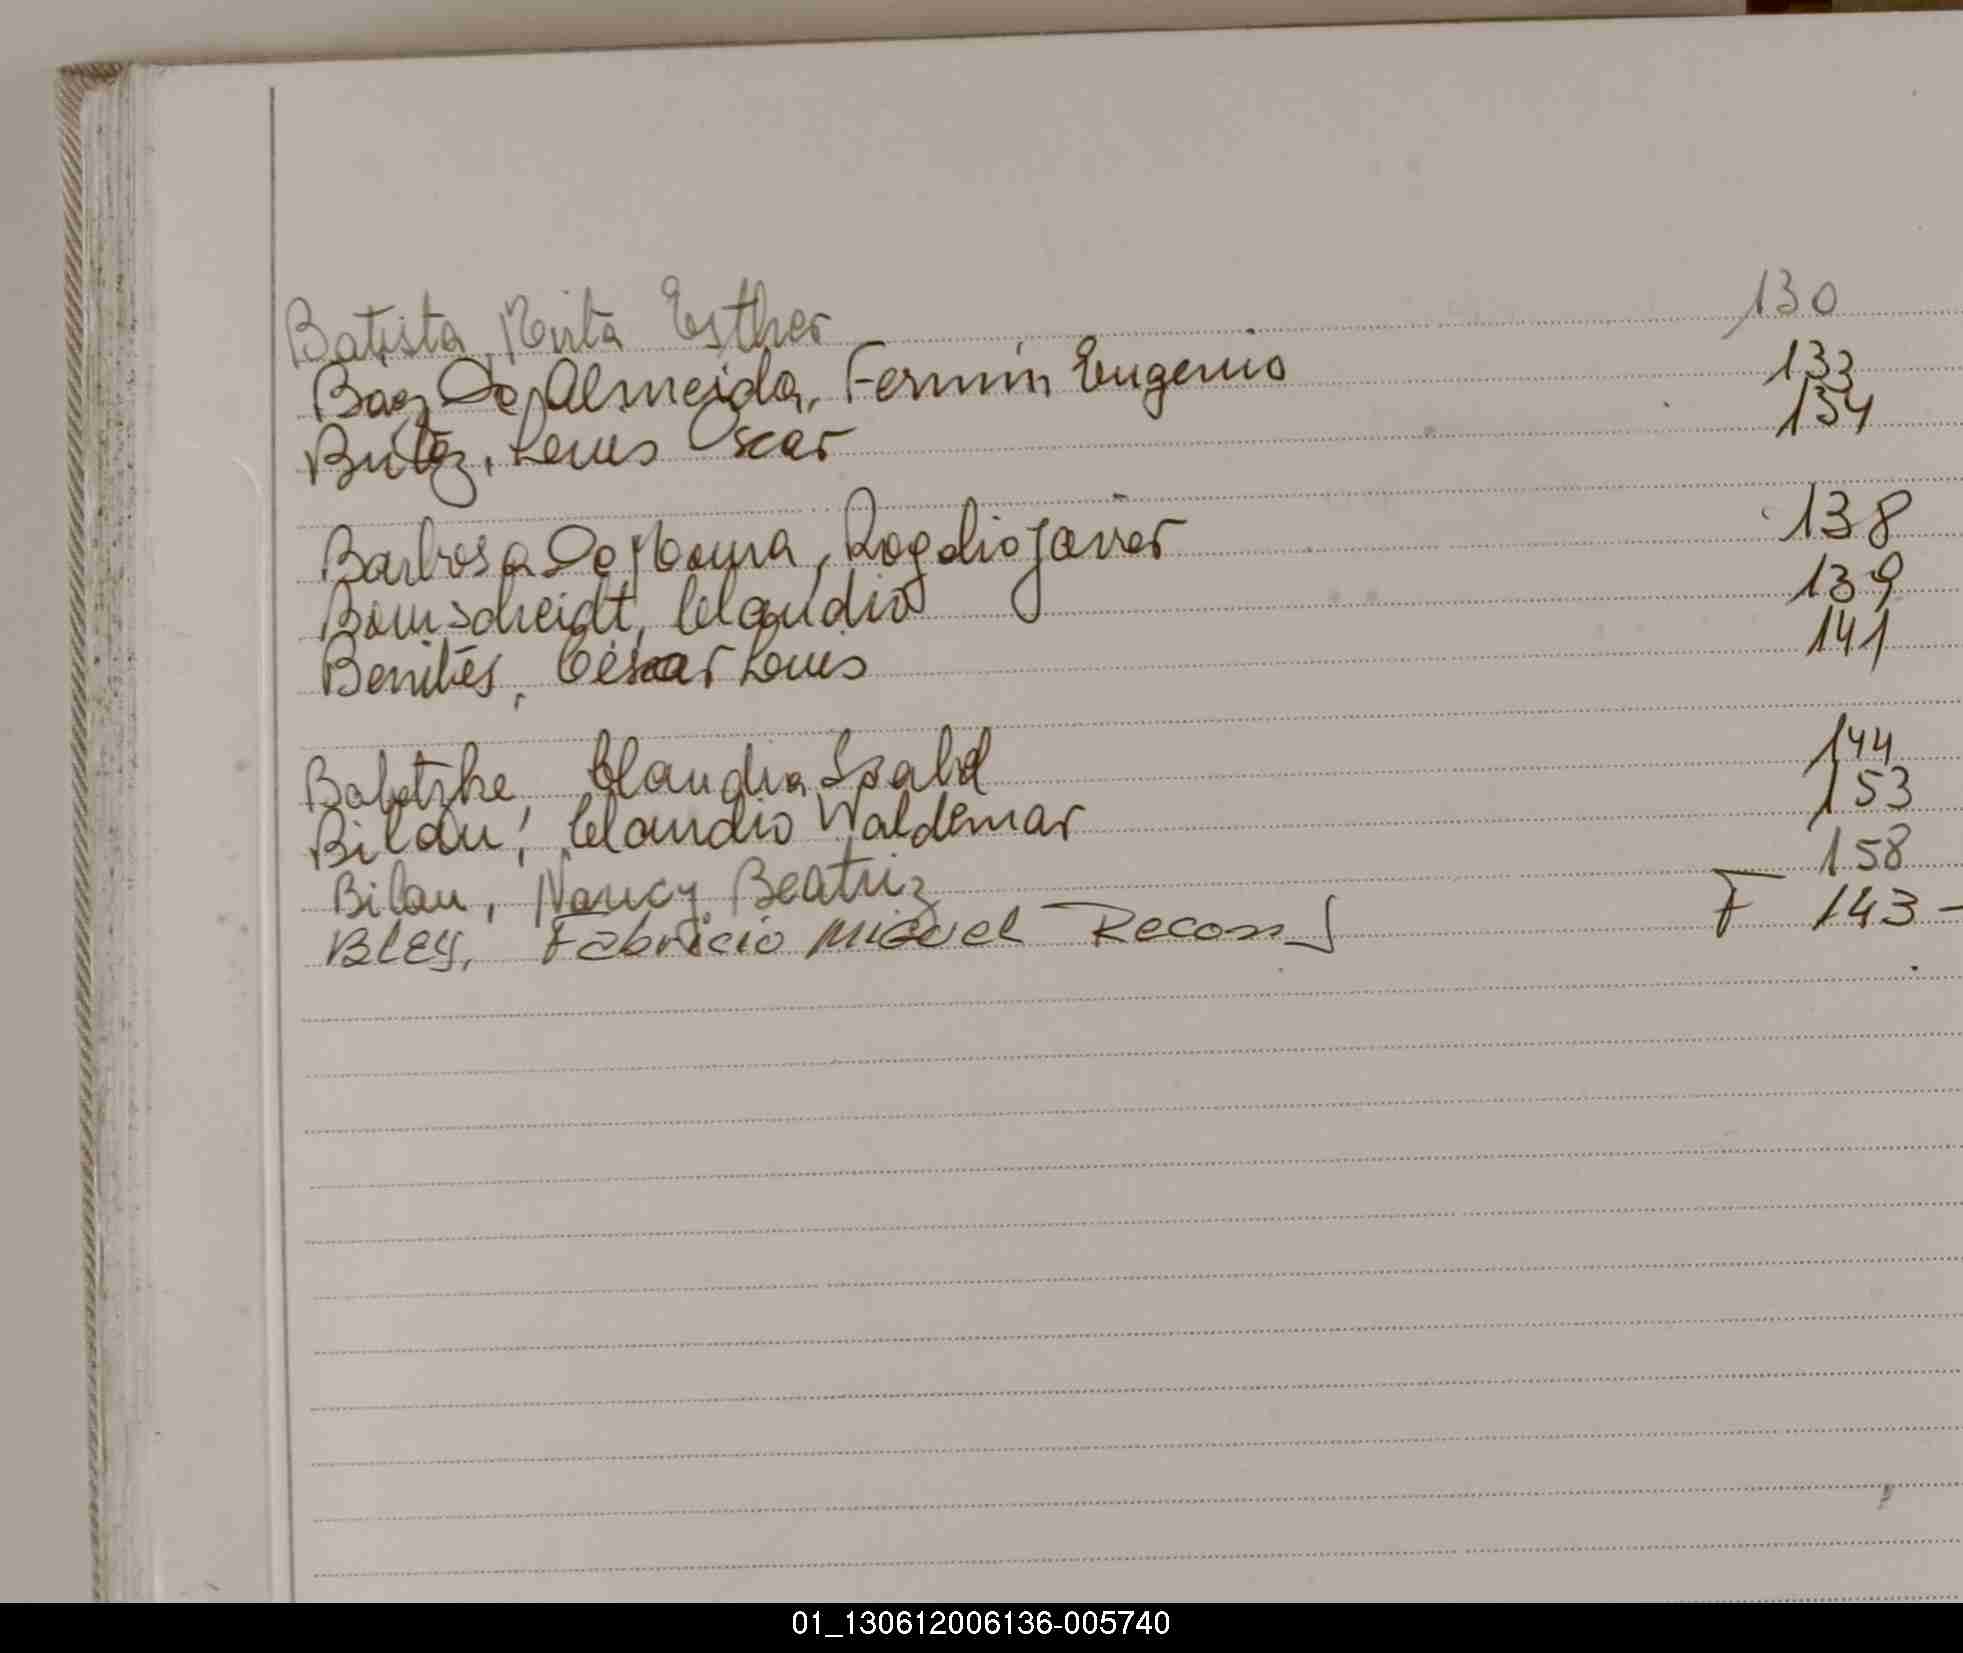 Batista, Mirta Esther 130
Báez De Almeida, Fermín Eugenio 133
Brítez, Luis Oscar 134
Barbosa De Moura, Rogelio Javier 138
Bomscheidt, Claudio 139
Benítes, César Luis 141
Babetzke, Claudia Isabel 144
Bilau, Claudio Waldemar 153
Bilau, Nancy Beatriz 158
BLEY, Fabricio Miguel F 143 -
01_130612006136-005740